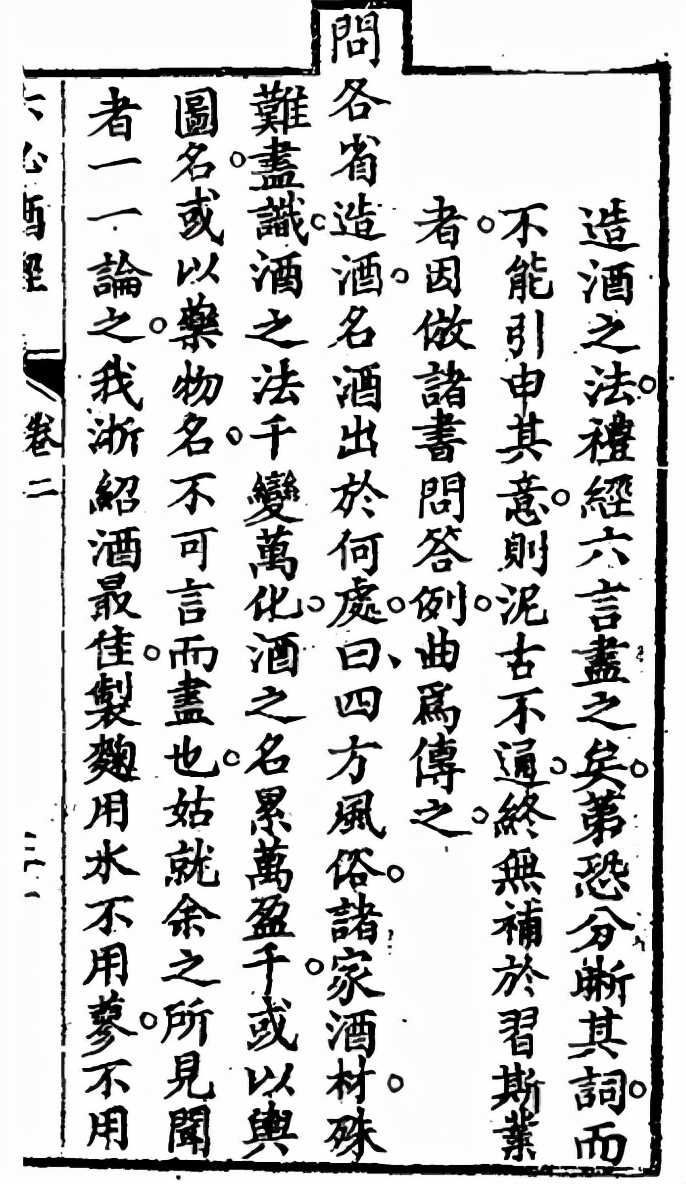 造酒之法。禮經六言盡之矣。第恐分晰其詞。而
不能引申其意。則泥古不通。終無補於習斯業
者。因倣諸書問答例。曲爲傳之。
問各省造酒。名酒出於何處。曰、四方風俗。諸家酒材。殊
難盡識。酒之法千變萬化。酒之名累萬盈千。或以輿
圖名。或以藥物名。不可言而盡也。姑就余之所見聞
者一一論之。我浙紹酒最佳。製麴用水不用蓼。不用
六必酒經 卷二